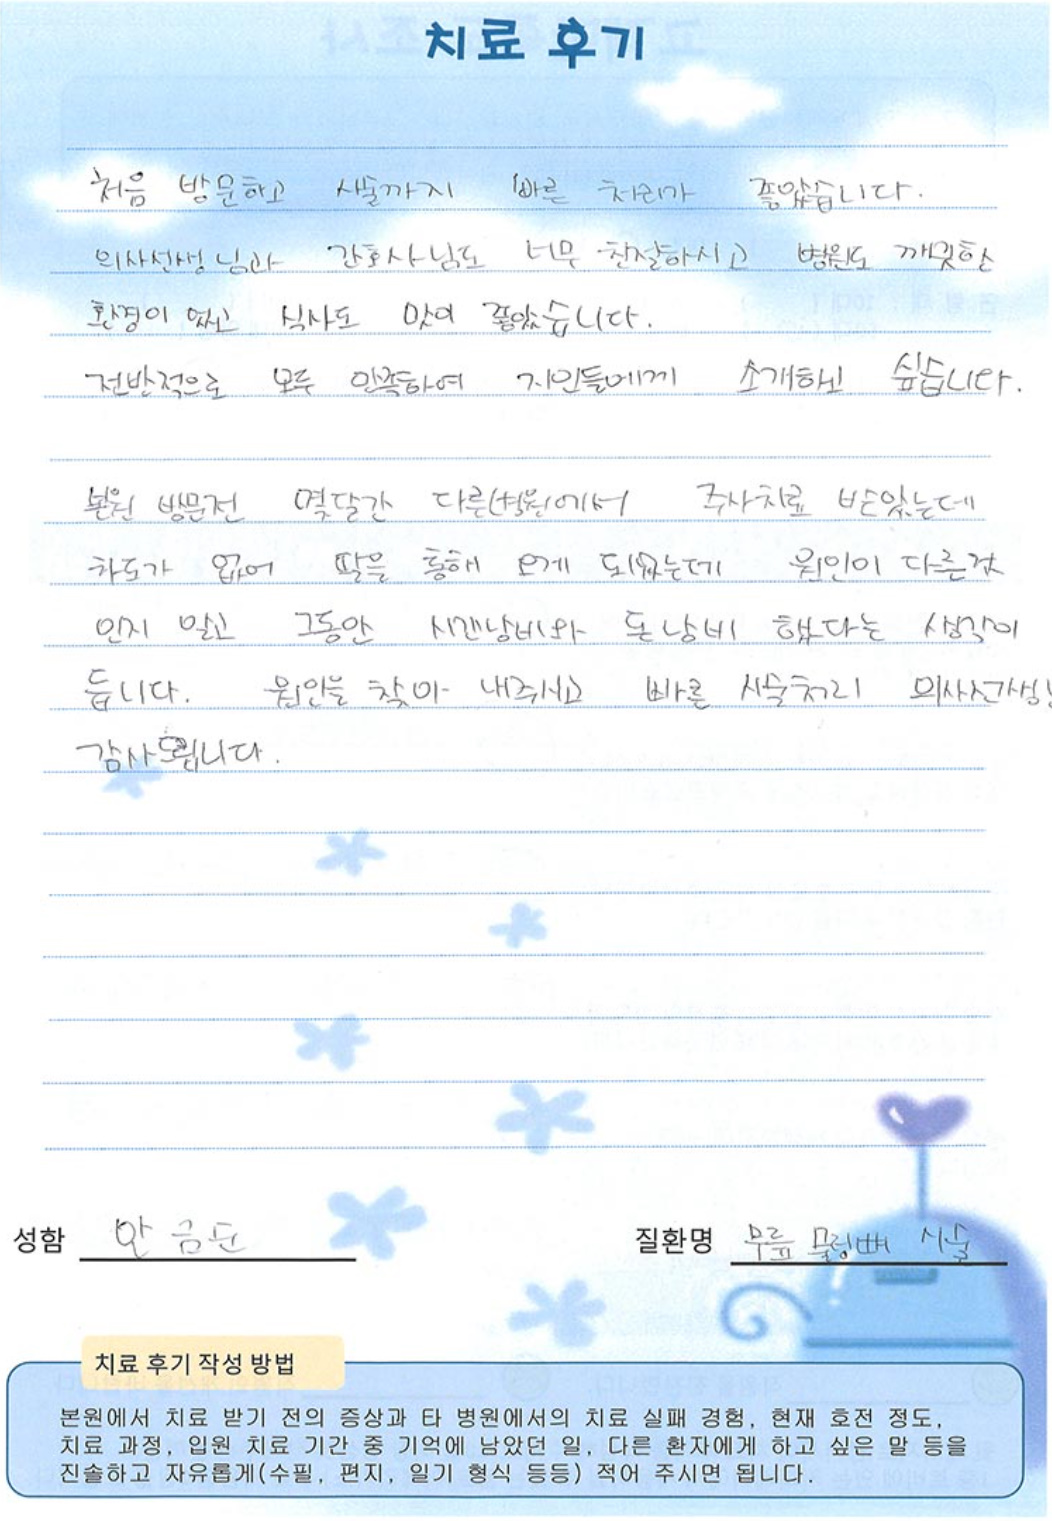 치료 후기
처음 방문하고 시술까지 빠른 처리가 좋았습니다.
의사선생님과 간호사님도 너무 친절하시고 병원도 깨끗한
환경이 였고 식사도 맛이 좋았습니다.
전반적으로 모두 만족하여 지인들에게 소개하고 싶습니다.
본원 방문전 몇달간 다른병원에서 주사치료 받았는데
차도가 없어 딸을 통해 오게 되었는데 원인이 다른것
인지 말고 그동안 시간낭비와 돈낭비 했다는 생각이
듭니다. 원인을 찾아 내주시고 빠른 시술처리 의사선생님
감사드립니다.
성함 안금순
질환명 무릎 물렁뼈 시술
치료 후기 작성 방법
본원에서 치료 받기 전의 증상과 타 병원에서의 치료 실패 경험, 현재 호전 정도,
치료 과정, 입원 치료 기간 중 기억에 남았던 일, 다른 환자에게 하고 싶은 말 등을
진솔하고 자유롭게(수필, 편지, 일기 형식 등등) 적어 주시면 됩니다.